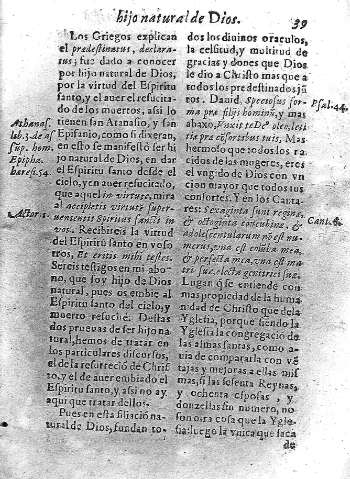 hijo natural de Dios. 39
Los Griegos explican
el predestinatus, declara-
tus; fue dado a conocer
por hijo natural de Dios,
por la virtud del Espiritu
santo, y el auer resucita-
do de los muertos, assi lo
tienen san Atanasio, y san
Epifanio, como si dixeran,
en esto se manifestò ser hi-
jo natural de Dios, en dar
el Espiritu santo desde el
cielo, y en auer resucitado,
que aquel in virtute, mira
al accipietis virtutẽ super-
uenientis Spiritus sancti in
vos. Recibireis la virtud
del Espiritu santo en voso
tros, Et eritis mihi testes.
Sereis testigos en mi abo-
no, que soy hijo de Dios
natural, pues os embie al
Espiritu santo del cielo, y
muerto resucité. Destas
dos prueuas de ser hijo na
tural, hemos de tratar en
los particulares discursos,
el de la resurreciõ de Chris
to, y el de auer embiado el
Espiritu santo, y assi no ay
aqui que tratar dellos.
Pues en esta filiaciõ na-
tural de Dios, fundan to-
Athanas.
lib. 3. de as
sũp. hom.
Epipha.
haresi. 54.
Actor. 1.
dos los diuinos oraculos,
la celsitud, y multitud de
gracias y dones que Dios
le dio a Christo mas que a
todos los predestinados jũ
tos. Dauid, Speciosus for-
ma præ filijs hominũ, y mas
abaxo, Vnxit te Deº oleo leti
tiæ præ cõsortibus tuis. Mas
hermoso que todos los na
cidos de las mugeres, eres
el vngido de Dios con vn-
cion mayor que todos sus
consortes. Y en los Canta-
res: Sexaginta sunt reginæ,
& octoginta concubinæ, &
adolescentularum nõ est nu-
merus, vna est colũba mea,
& perfecta mea, vna est ma
tri suæ, electa genitrici suæ.
Lugar q̃ se entiende con
mas propiedad de la huma
nidad de Christo que de la
Yglesia, porque siendo la
Yglesia la congregacio de
las almas santas, como a-
uia de compararla con vẽ
tajas y mejoras a ellas mis
mas, si las sesenta Reynas,
y ochenta esposas, y
donzellas sin numero, no
son otra cosa que la Ygle-
sia: luego la vnica que saca
de
Psal. 44.
Cant. 6.